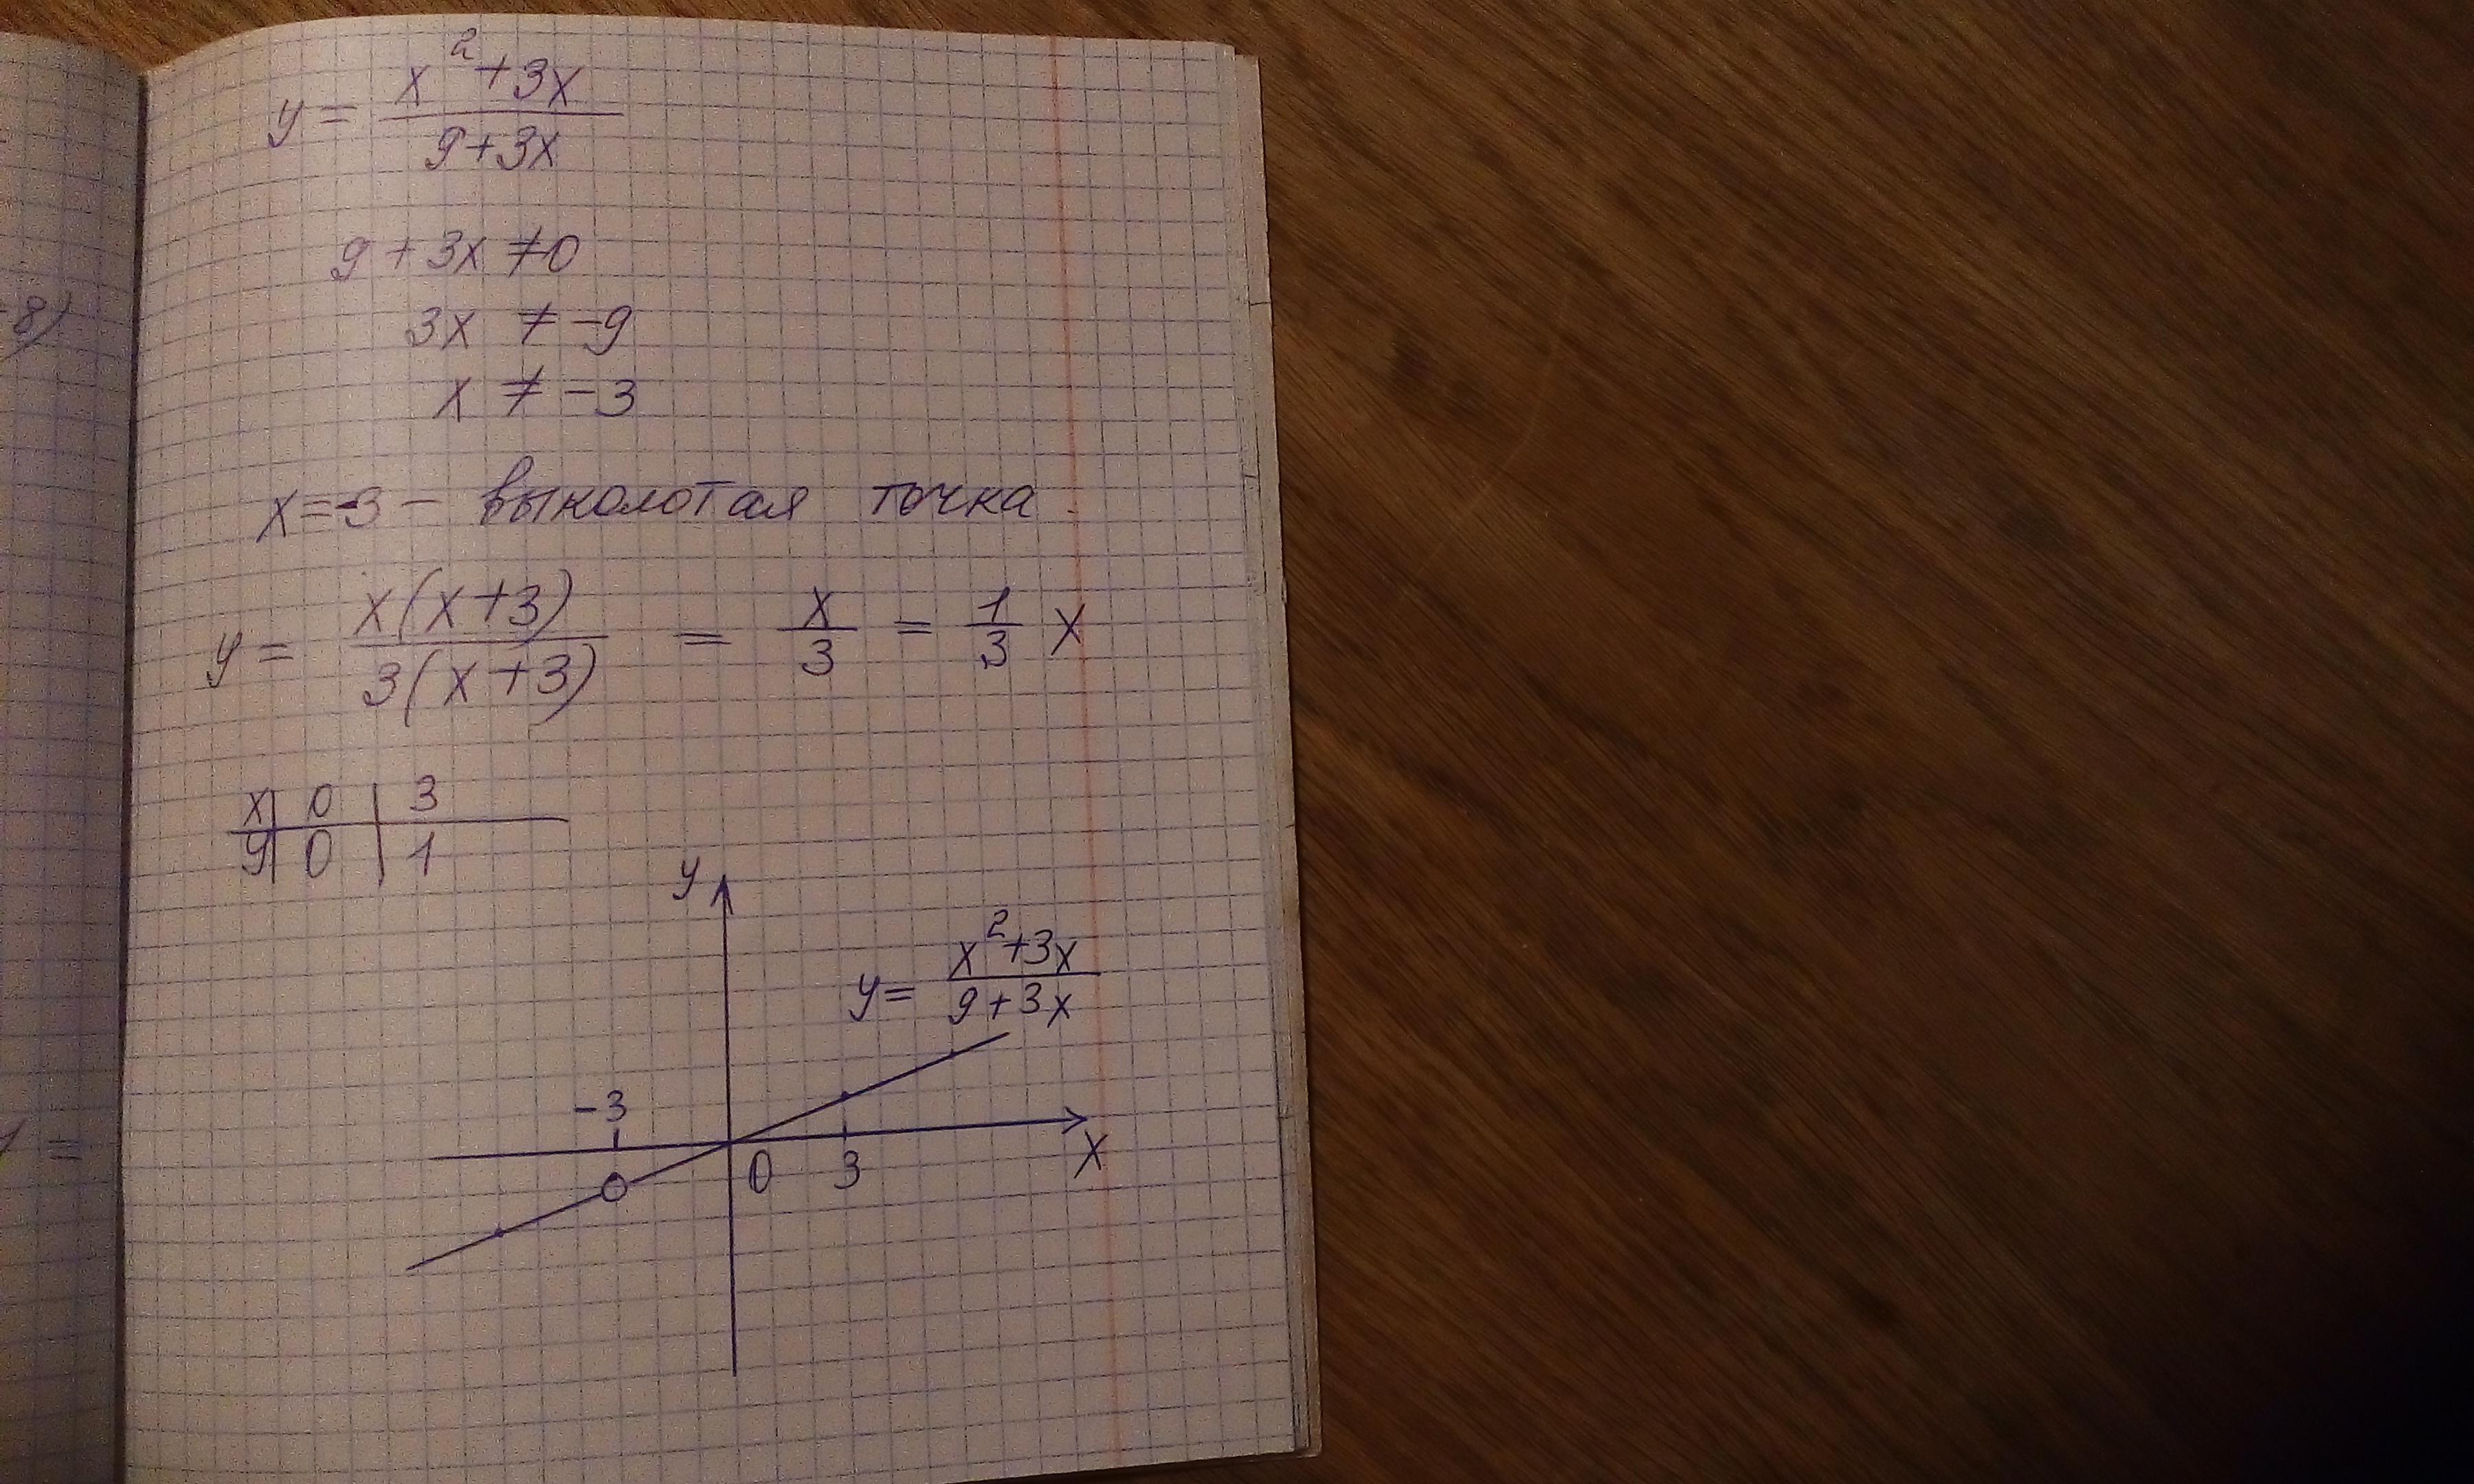 y = x² + 3x / 9 + 3x
9 + 3x ≠ 0
3x ≠ -9
x ≠ -3
x = -3 - выколотая точка
y = x(x + 3) / 3(x + 3) = x / 3 = 1 / 3 x
x | 0 | 3
y | 0 | 1
y
y = x² + 3x / 9 + 3x
-3
0 3 x
-8)
=